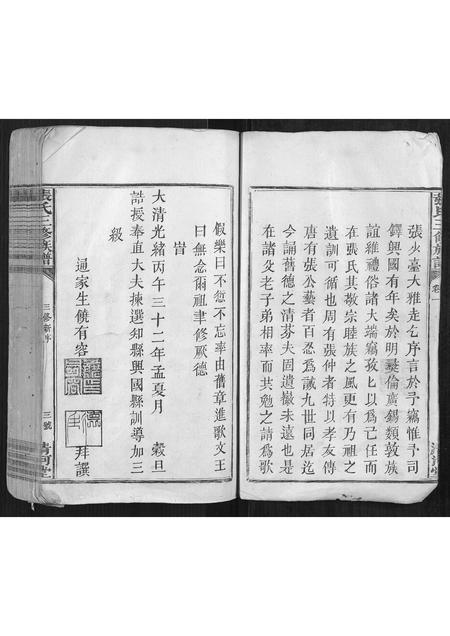 張氏三修族譜 卷一
張火臺大雅走乞序言於予竊惟予司
鐸興國有年矣於明彝倫廣錫類敦族
誼維禮俗諸大端竊孜孜以爲己任而
在張氏其敬宗睦族之風更有乃祖之
遺訓可循也周有張仲者特以孝友傳
唐有張公藝者百忍爲誡九世同居迄
今誦舊德之清芬夫固遺徽未遠也是
在諸父老子弟相率而共勉之請爲歌
假樂曰不愆不忘率由舊章進歌文王
曰無念爾祖聿修厥德
旹
大清光緒丙午三十二年孟夏月 穀旦
誥授奉直大夫揀選知縣興國縣訓導加三
級
通家生饒有容 拜譔
張氏三修族譜
三修新序
三號
清河堂